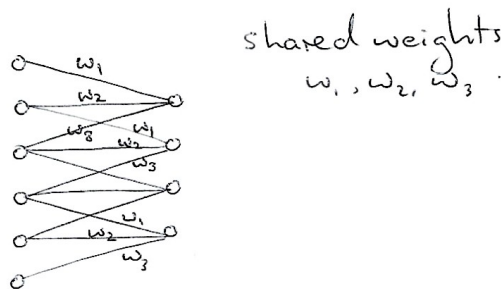 shared weights
w1, w2, w3.
w1
w2
w3
w1
w2
w3
w1
w2
w3